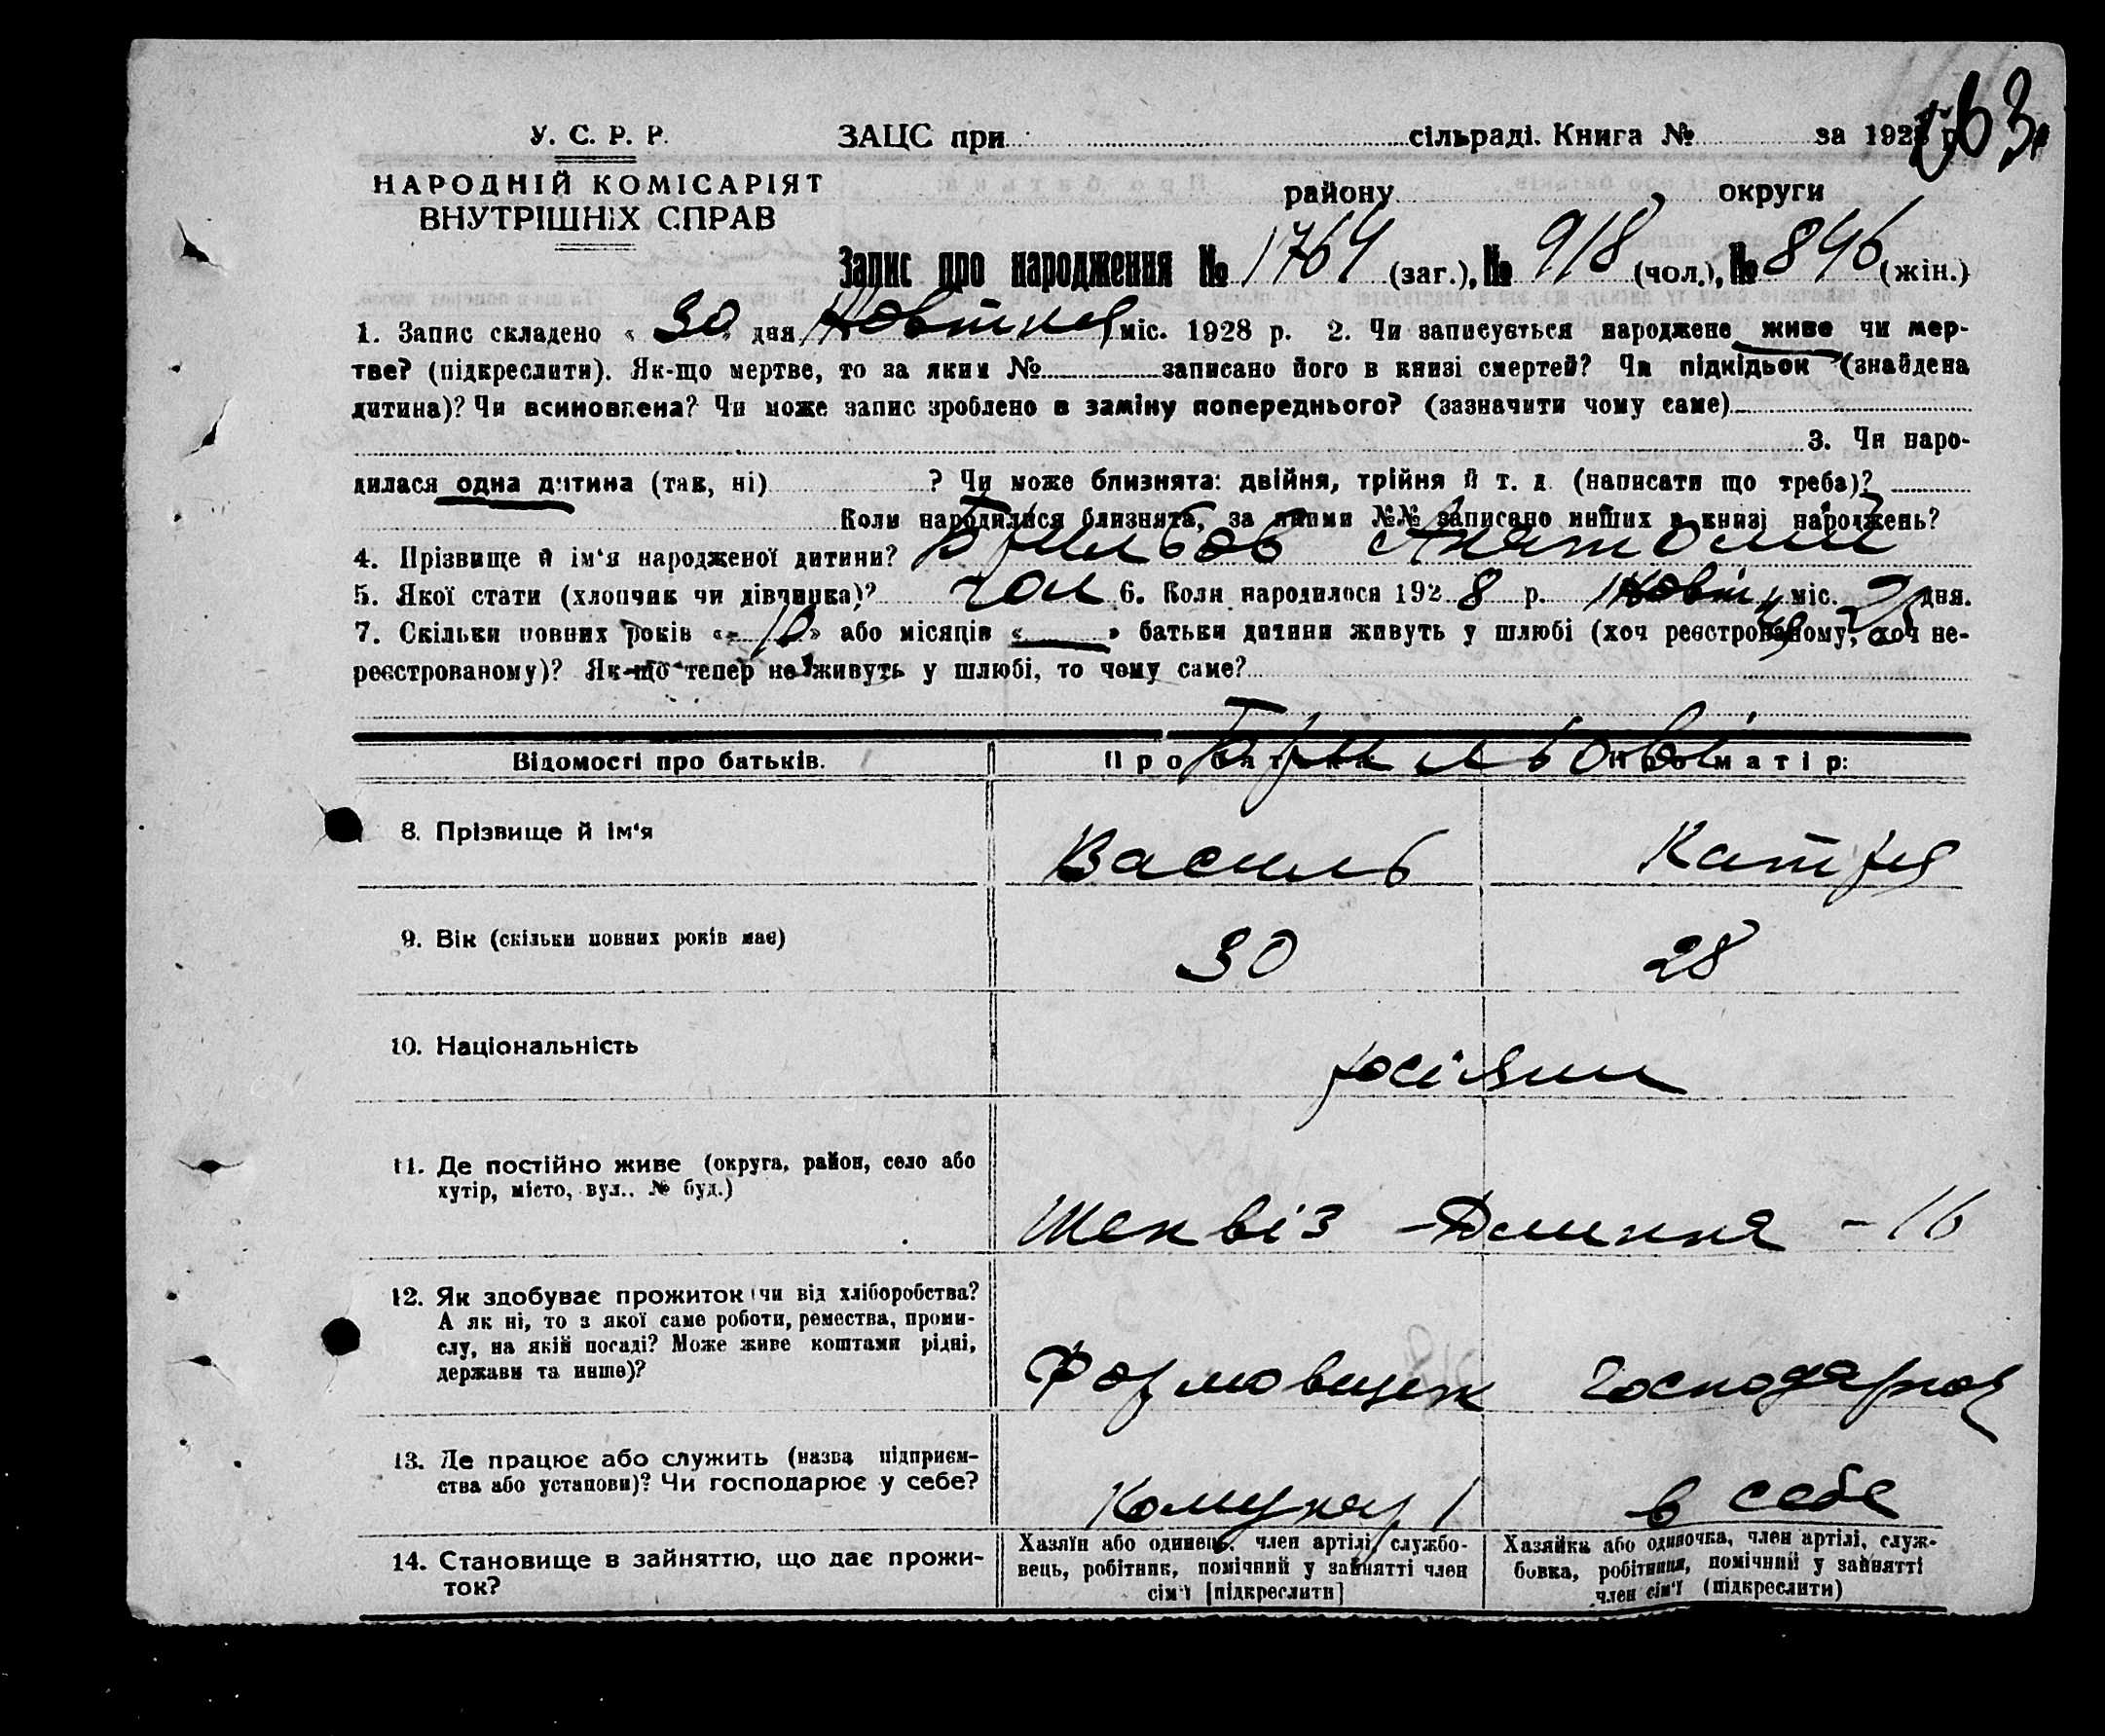 63.
У. С. Р. Р. ЗАЦС при сільраді. Книга № за 192 р.
НАРОДНІЙ КОМІСАРІЯТ району округи
ВНУТРІШНІХ СПРАВ
Запис про народження № 1764 (заг.), № 918 (чол.), № 846 (жін.)
1. Запис складено « 30 » дня Жовтня міс. 1928 р. 2. Чи записується народжене живе чи мер-
тве? (підкреслити). Як-що мертве, то за яким № записано його в книзі смертей? Чи підкідьок (знайдена
дитина)? Чи всиновлена? Чи може запис зроблено в заміну попереднього? (зазначити чому саме)
3. Чи наро-
дилася одна дитина (так, ні) ? Чи може близнята: двійня, трійня й т. д. (написати що треба)?
Коли народилися близнята, за якими №№ записано инших в книзі народжень?
4. Прізвище й ім'я народженої дитини? Анатолій
5. Якої стати (хлопчик чи дівчинка)? чол 6. Коли народилося 1928 р. Жовт міс. дня.
7. Скільки повних років « 10 » або місяців « — » батьки дитини живуть у шлюбі (хоч реєстрованому, хоч не-
реєстрованому)? Як-що тепер не живуть у шлюбі, то чому саме?
Відомості про батьків. Про батька Про матір:
8. Прізвище й ім'я Василь Катря
9. Вік (скільки повних років має) 30 28
10. Національність росіяни
11. Де постійно живе (округа, район, село або
хутір, місто, вул.. № буд.)
– 16
12. Як здобуває прожиток (чи від хліборобства?
А як ні, то з якої саме роботи, ремества, проми-
слу, на якій посаді? Може живе коштами рідні,
держави та инше)?
Формовщик Господарює
13. Де працює або служить (назва підприєм-
ства або установи)? Чи господарює у себе?
в себе
14. Становище в зайняттю, що дає прожи-
ток?
Хазяїн або одинець, член артілі, службо-
вець, робітник, помічний у зайнятті член
сім'ї [підкреслити]
Хазяйка або одиночка, член артілі, служ-
бовка, робітниця, помічний у зайнятті
член сім'ї (підкреслити)